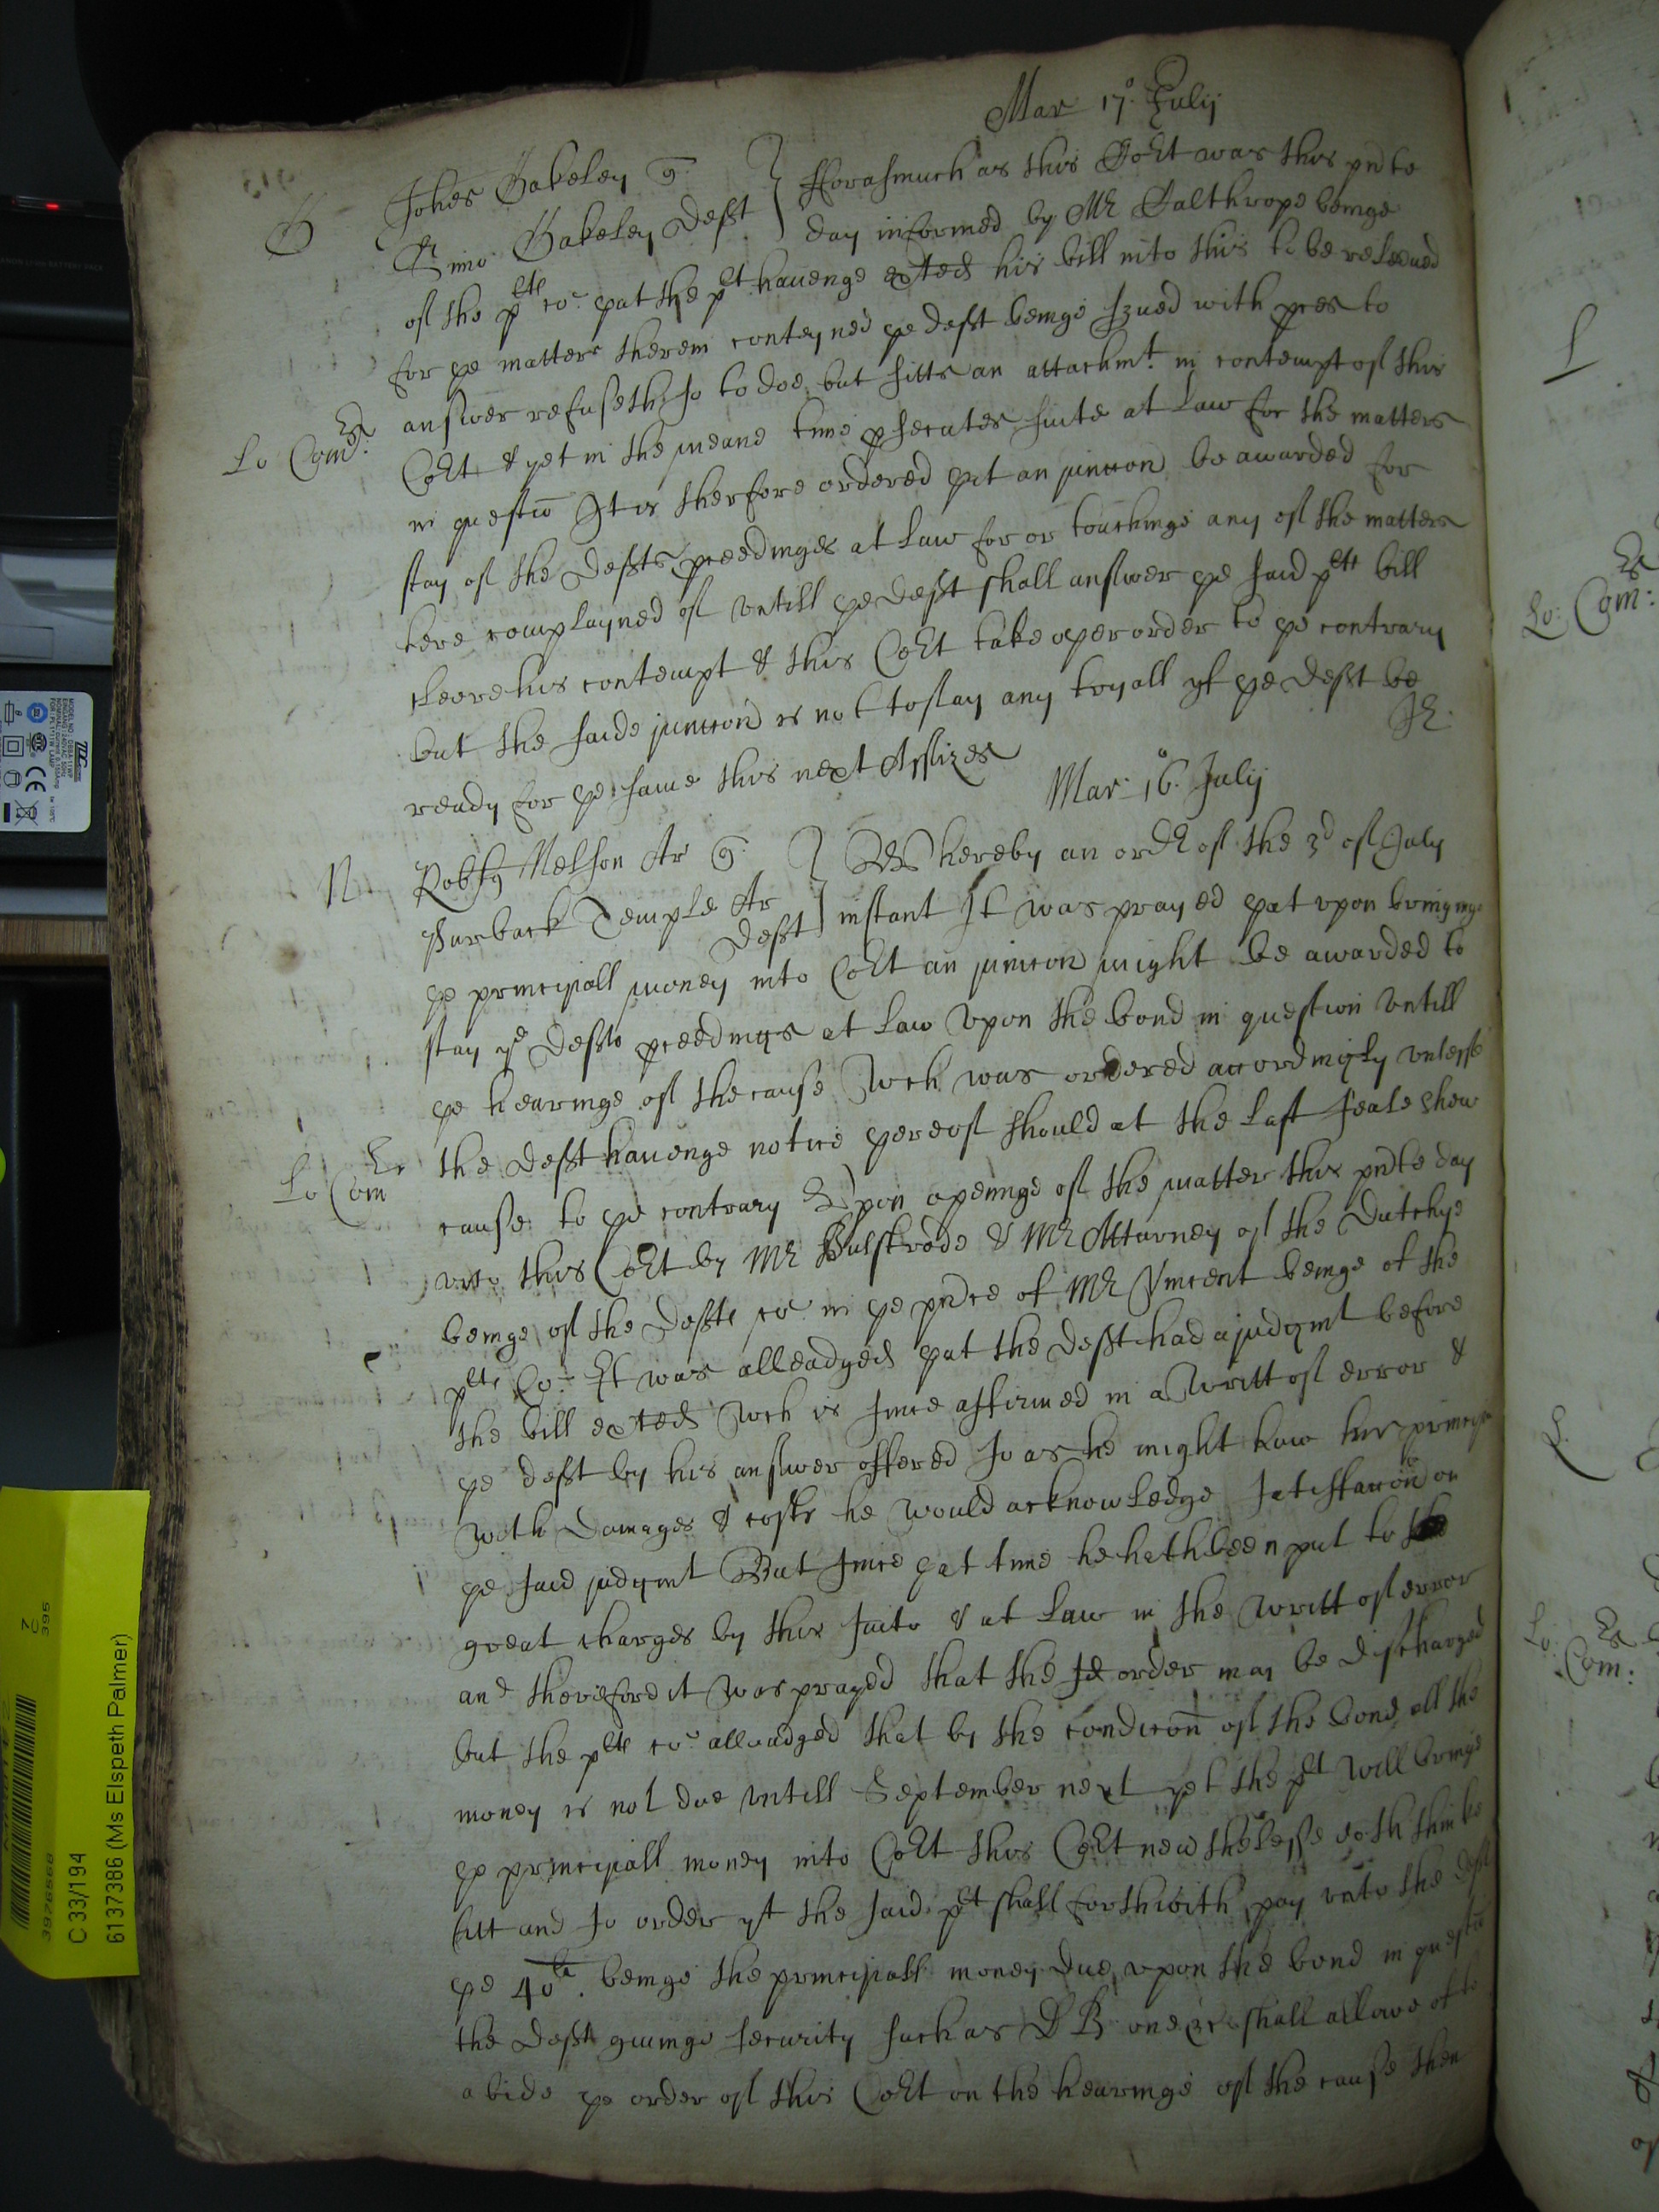 Mar 17o. Julij
B Johes Bakeley q.
Bakeley Deft
Forasmuch as this Cort was this pnte
day informed by Mr Calthrope beinge
of the plts co: yat the plt havenge exted his bill into this to be releeved
for ye matters therein conteyned ye deft beinge served with pces to
answer refuseth so to doe but sitts an attachmt. in contempt of this
Lo Com:
Cort & yet in the meane time psecutes suite at law for the matters
in questio It is therfore ordered yat an junccon be awarded for
stay of the Defts pceedinges at law for or touchinge any of the matters
here complayned of untill ye deft shall answer ye said plts bill
cleere his contempt & this Cort take oyer order to ye contrary
but the saide junccon is not to stay any tryall yf ye deft be
ready for ye same this next Assizes
Mar 16o. Julij
N Robtg Nelson Ar q.
Purback Temple Ar
Deft
Whereby an ordr of the 3d of July
instant It was prayed yat upon bringinge
ye principall money into Cort an junccon might be awarded to
stay ye Defts pceedings at law upon the bond in question untill
ye hearinge of the cause wch was ordered accordingly unlesse
Lo Com
the deft havenge notice yereof should at the last seale shew
cause to ye contrary Upon openinge of the matter this pnte day
unto this Cort by Mr Bulstrode & Mr Attorney of the Dutchye
beinge of the Defts co: in ye pnce of Mr Vincent beinge of the
plts Co: It was alleadged yat the deft had a judgmt before
the bill exted wch is since affirmed in a writt of error &
ye deft by his answer offered so as he might have his
with damages & costs he would acknowledge satisfaccon on
ye said judgmt But since yat time he hath been put to
great charges by this suite & at law in the writt of error
and therefore it was prayed that the sd order may be discharged
but the plts co: alleadged that by the condicon of the bond all the
money is not due untill September next yet the plt will bringe
ye principall money into Cort this Cort nevthelesse doth thinke
fitt and so order yt the said plt shall forthwith pay unto the deft
ye 40li. beinge the principall money due upon the bond in questio
the deft givinge security such as Dr B one &c shall allowe of to
abide ye order of this Cort on the hearinge of the cause then
Lo: Com:
Lo: Com:
C 33/194
6137386 (Ms Elspeth Palmer)